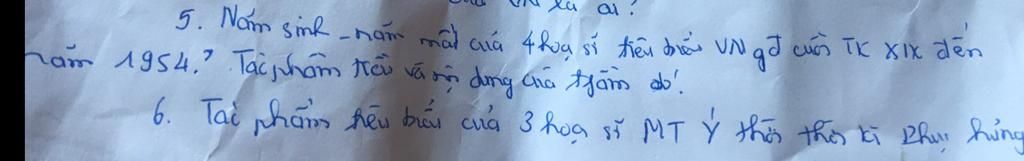 VN xa ai?
5. Năm sinh - năm mất của 4 hoạ sĩ tiêu biểu VN gđ cuối TK XIX đến
năm 1954? Tác phẩm tiêu và nội dung của t/phẩm đó!
6. Tác phẩm tiêu biểu của 3 hoạ sĩ MT Ý thời thời kì Phục hưng